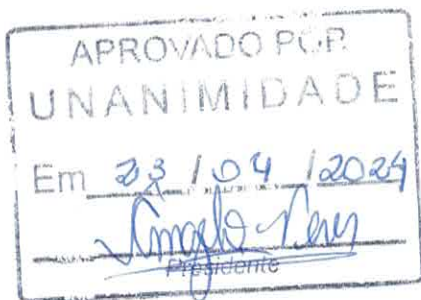 APROVADO POR
UNANIMIDADE
Em 23 / 04 / 2024
Presidente